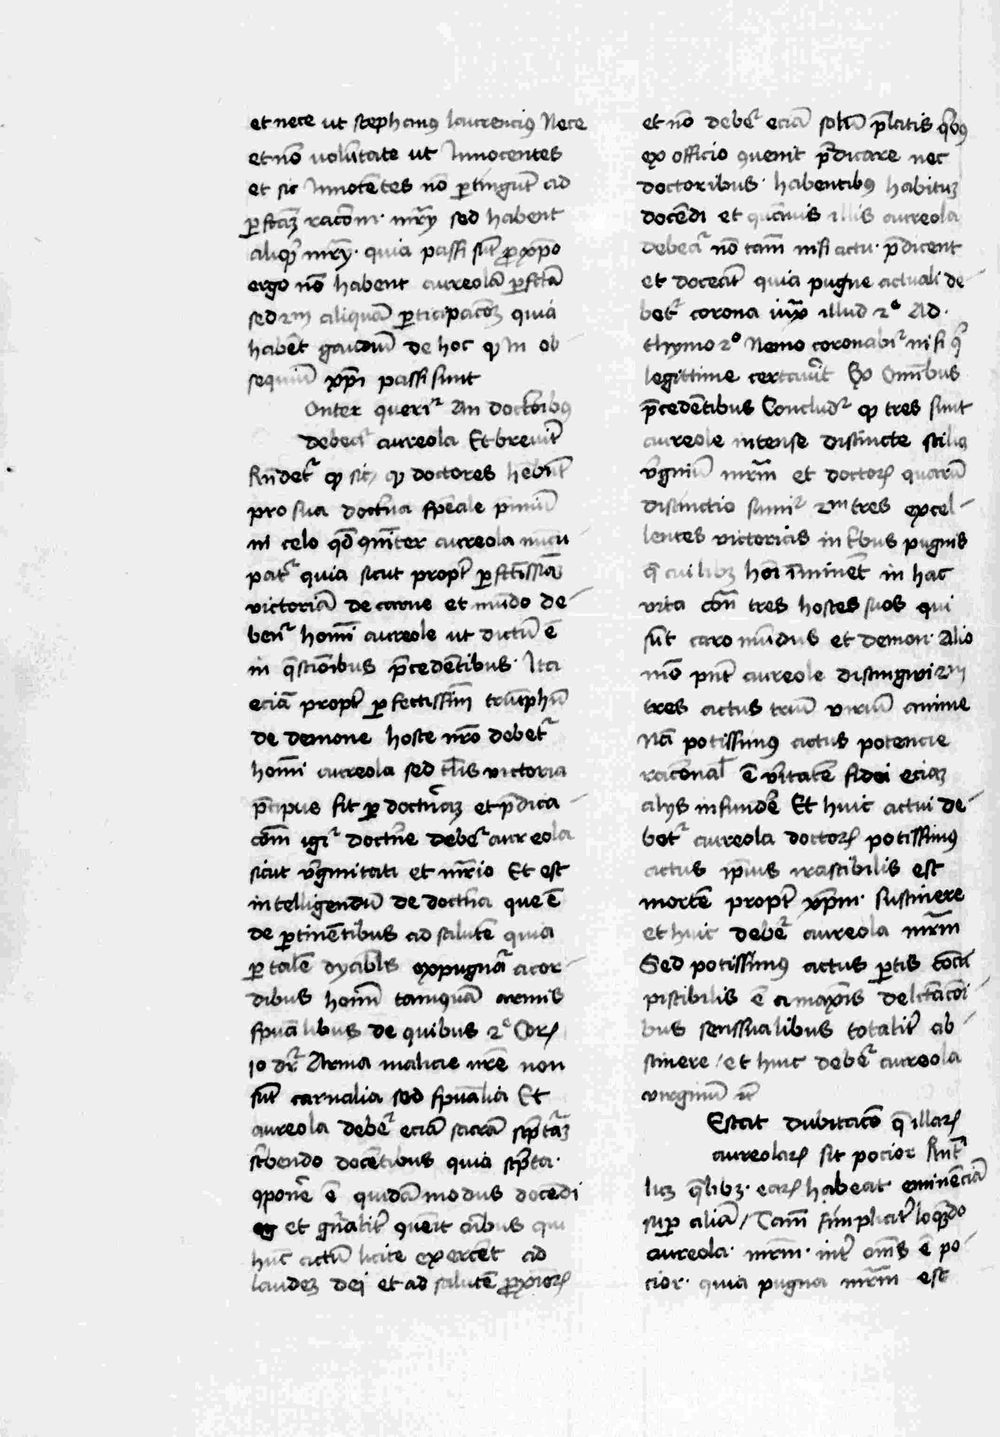 et nece ut stephanus laurencius Nece
et nō volūtate ut Innocentes
et sic Innocētes nō ꝑtingūt ad
ꝑfctaꝫ racōm mr̄ẏ sed habent
aliqͦ mr̄ẏ quia passi sūt ꝓ xp̄o
ergo nō habent aureolā ꝑfctā
sed 2m aliquā ꝑticipacōꝫ quia
habēt gaudiū de hoc ꝙ in ob
sequiū xp̄i passi sunt
Queriť An doctoribꝯ
debeať aureola Et breviť
Rn̄deť ꝙ sic ꝙ doctores hēbūt
pro sua doctᷓna sp̄eale p̄miū
in celo qd̄ aureola nūcu
pať quia sicut propť ꝑfctissīaꝫ
victoriā de carne et mūdo de
benť homī aureole ut dictū ē
in q̄stiōibus p̄cedētibus Ita
eciā propť ꝑfectissim̄ triūphū
de demone hoste nr̄o debeť
homī aureola sed tl̄is victoria
p̄cipue fit ꝑ doctᷓnaꝫ et p̄dica
cōm igiť doctᷓne debeť aureola
sicut v̓ginitati et mr̄rio Et est
intelligendū de doctᷓna que ē
de ꝑtinētibus ad salutē quia
ꝑ talē dyabl̄s expugnať a cor
dibus homī tamquā armis
sp̄ualibus de quibus 2ͦ Coꝝ
10 dr̄ Arma malicie nr̄e non
sūt carnalia sed sp̄ualia Et
aureola debeť eciā sacrā sc̄ptᷓaꝫ
sc̓bendo docētibus quia sc̄pta
ꝯponē̓ ē quidā modus docēdi
et gn̄aliť ꝯvēit oībus qui
huc actū licite exercēt ad
laudeꝫ dei et ad salutē ꝓximoꝝ
et nō debeť eciā solū p̄latis qͥbꝯ
ex officio ꝯvenit p̄dicare nec
doctoribus habentibꝯ habituꝫ
docēdi et quāvis illis aureola
debeať nō tamē nisi actu p̄dicent
et doceāt quia pugne actuali de
beť corona iuxͣ illud 2ͦ Ad
thymo 2ͦ Nemo coronabiť nisi qͥ
legittime certaverit Ex Omībus
p̄cedētibus Concludiť ꝙ tres sunt
aureole intense distincte scilꝫ
v̓giniū mr̄m et doctoꝝ quarū
distinctio sumiť 2m tres excel
lentes victorias in tͥbus pugnis
q̄ cuilibꝫ hoī īminēt in hac
vita cōͣ tres hostes suos qui
sūt caro mūdus et demon Alio
mō pn̄t aureole distingwi 2m
tres actus triū viriū anime
Nā potissimꝯ actus potencie
racōnal̄ ē v̓itatē fidei eciaꝫ
alẏs infundē̓ Et huic actui de
beť aureola doctoꝝ potissimꝯ
actus ip̄ius irascibilis est
mortē propť xp̄m sustinere
et huic debeť aureola mr̄m
Sed potissimꝯ actus ꝑtis cōcu
piscibilis ē a maxīs delc̄tacōi
bus senssualibus totaliť ab
stinere / et huic debeť aureola
virginū ꝛc̄
Estat dubitacō q̄ illaꝝ
aureolaꝝ sit pocior Rn̄ť
licꝫ q̄libꝫ eaꝝ habeat eminēciā
suꝑ aliā / Tamē simpliciť loqͣndo
aureola mr̄m inť oms̄ ē po
cior quia pugna mr̄m est